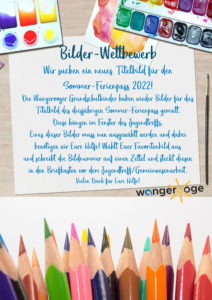 Bilder-Wettbewerb
Wir suchen ein neues Titelbild für den
Sommer-Ferienpass 2022!
Die Wangerooger Grundschulkinder haben wieder Bilder für das
Titelbild des diesjährigen Sommer-Ferienpass gemalt.
Diese hängen im Fenster des Jugendtreffs.
Eines dieser Bilder muss nun ausgewählt werden und dabei
benötigen wir Eure Hilfe! Wählt Euer Favoritenbild aus
und schreibt die Bildnummer auf einen Zettel und steckt diesen
in den Briefkasten vor dem Jugendtreff/Gemeinwesenarbeit.
Vielen Dank für Eure Hilfe!
wangerooge